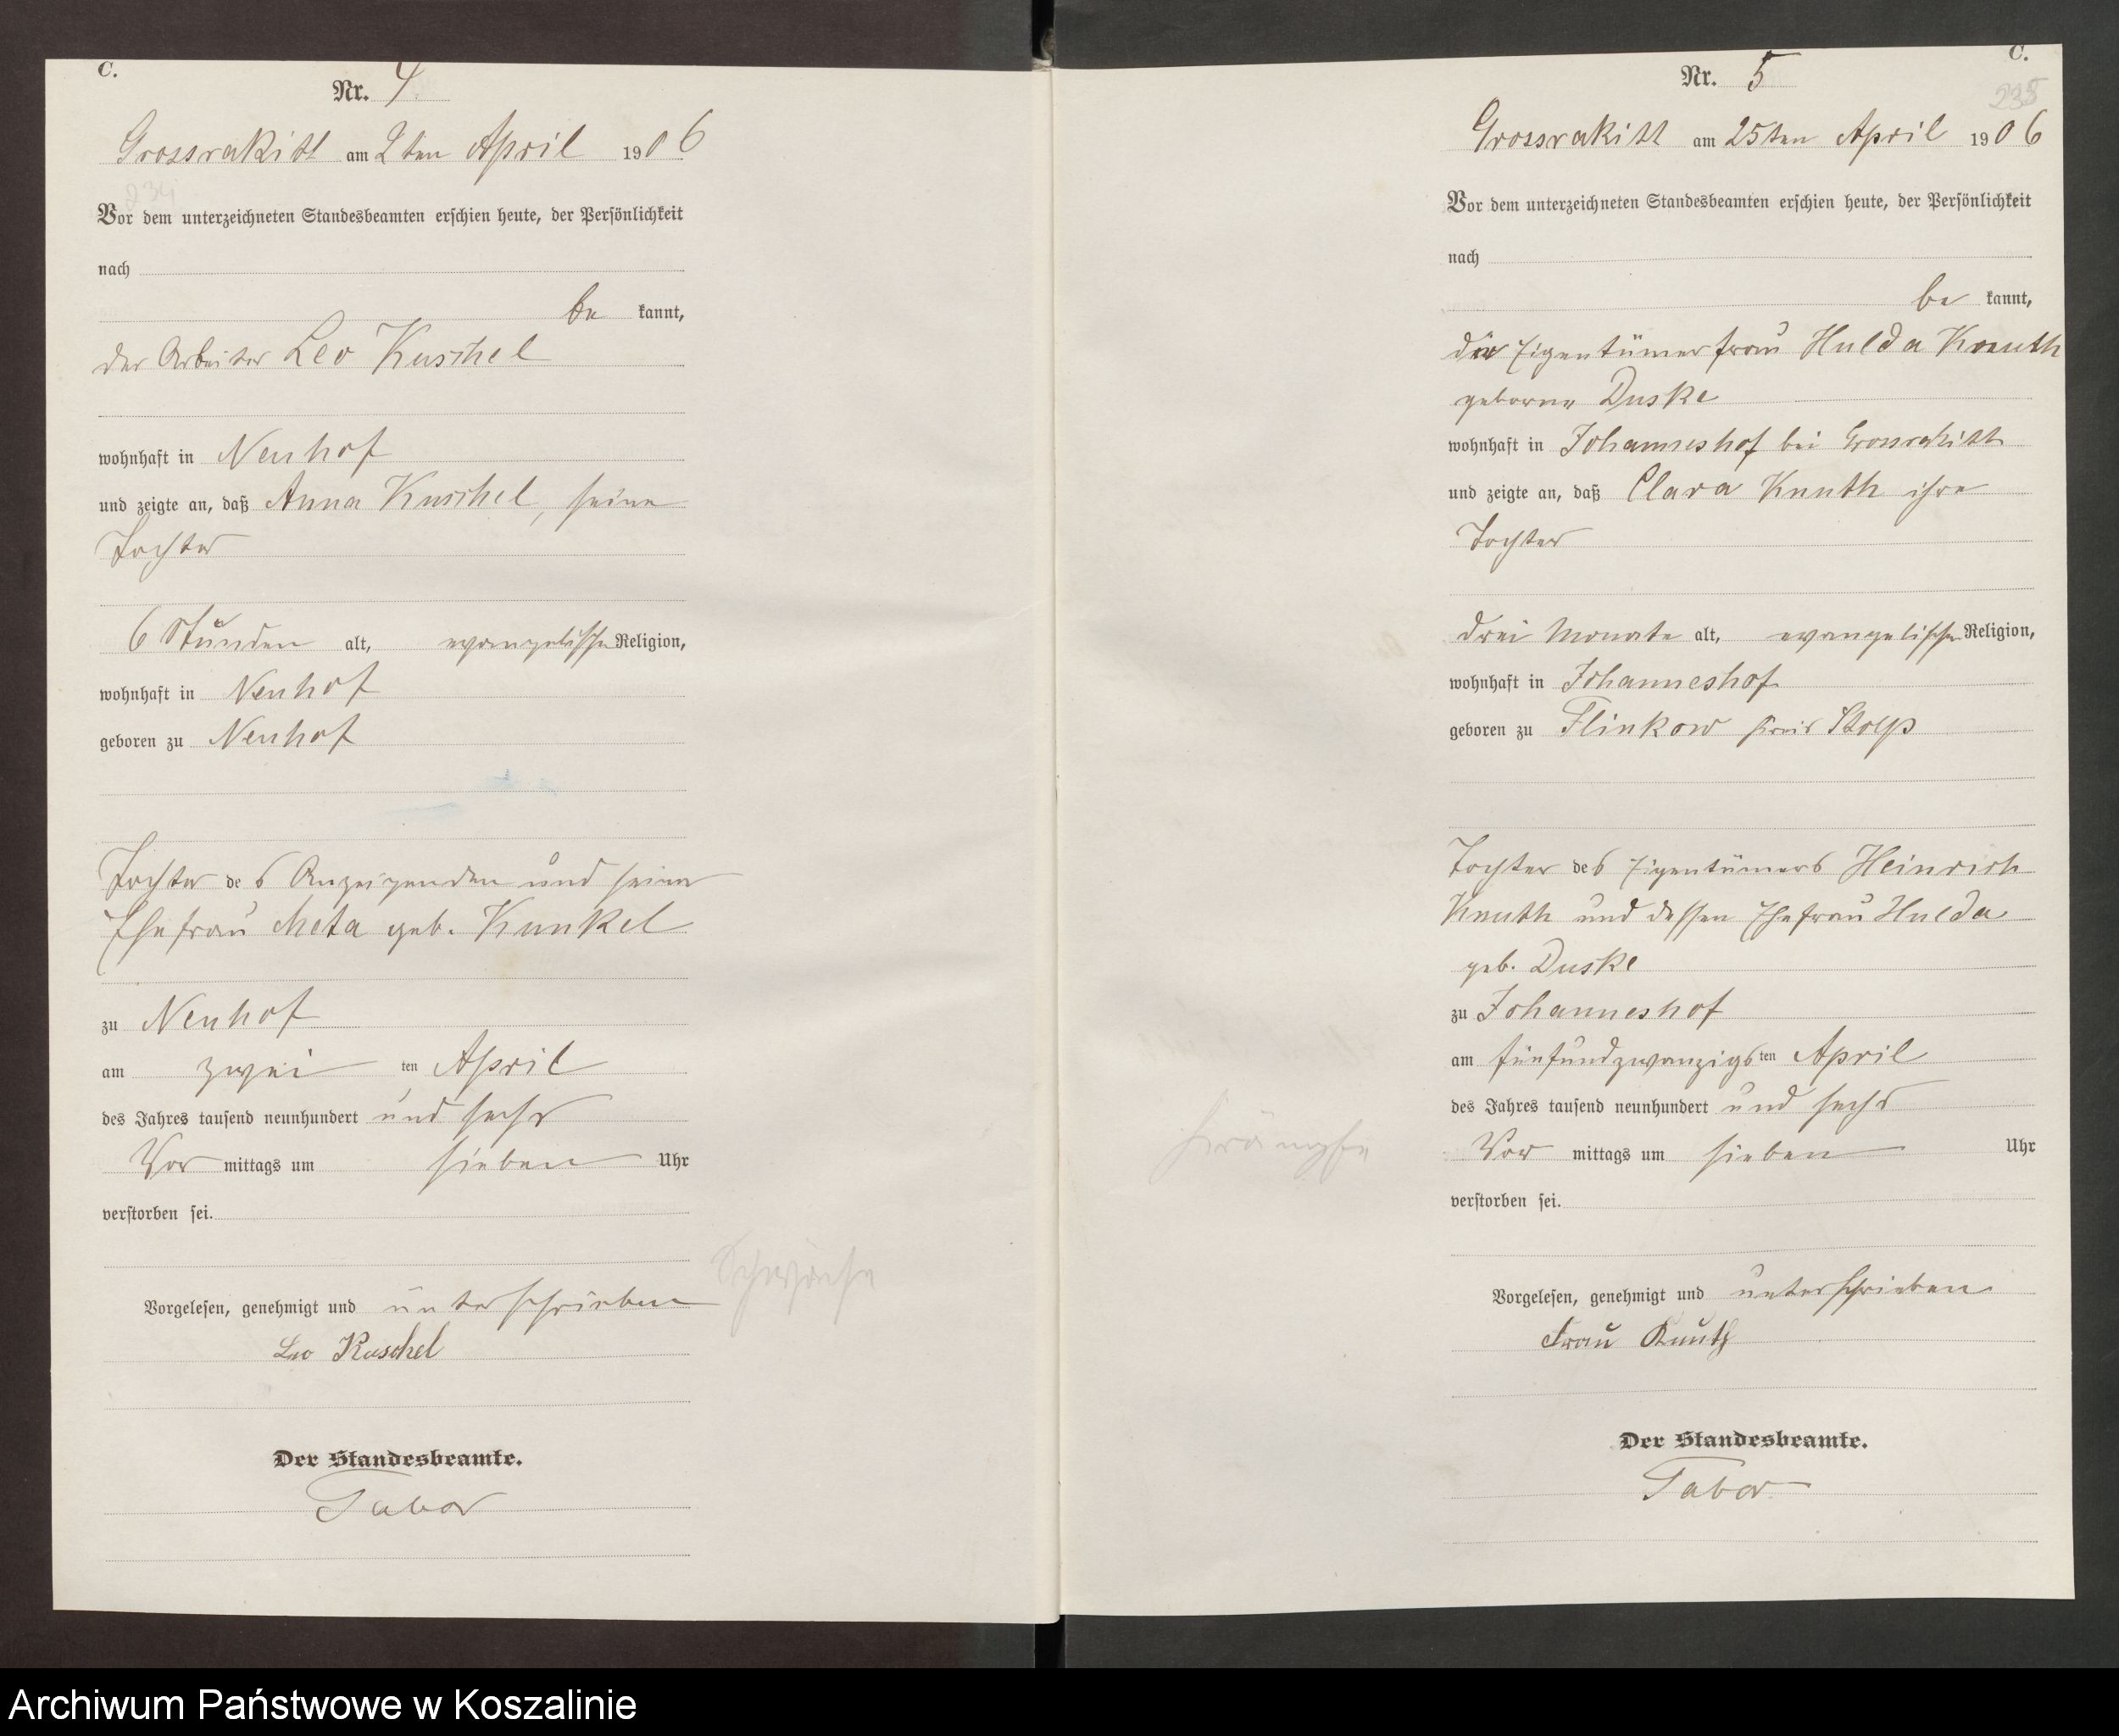 C.
Nr. 4
Grossrakitt am 2ten April 1906
234
Vor dem unterzeichneten Standesbeamten erschien heute, der Persönlichkeit
nach
be kannt,
der Arbeiter Leo Kuschel
wohnhaft in Neuhof
und zeigte an, daß Anna Kuschel, seine
Tochter
6 Stunden alt, evangelischer Religion,
wohnhaft in Neuhof
geboren zu Neuhof
Tochter des Anzeigenden und seiner
Ehefrau Meta geb. Kunkel
zu Neuhof
am zwei ten April
des Jahres tausend neunhundert und sechs
Vor mittags um sieben Uhr
verstorben sei.
Schwäche
Vorgelesen, genehmigt und unterschrieben
Leo Kuschel
Der Standesbeamte.
Tabor
C.
Nr. 5
235
Grossrakitt am 25ten April 1906
Vor dem unterzeichneten Standesbeamten erschien heute, der Persönlichkeit
nach
be kannt,
die Eigentümerfrau Hulda Knuth
geborne Duske
wohnhaft in Johanneshof bei Grossrakitt
und zeigte an, daß Clara Knuth ihre
Tochter
drei Monate alt, evangelischer Religion,
wohnhaft in Johanneshof
geboren zu Flinkow Kreis Stolp
Tochter des Eigentümers Heinrich
Knuth und dessen Ehefrau Hulda
geb. Duske
zu Johanneshof
am fünfundzwanzigsten April
des Jahres tausend neunhundert und sechs
Krämpfe
Vor mittags um sieben Uhr
verstorben sei.
Vorgelesen, genehmigt und unterschrieben
Frau Knuth
Der Standesbeamte.
Tabor
Archiwum Państwowe w Koszalinie